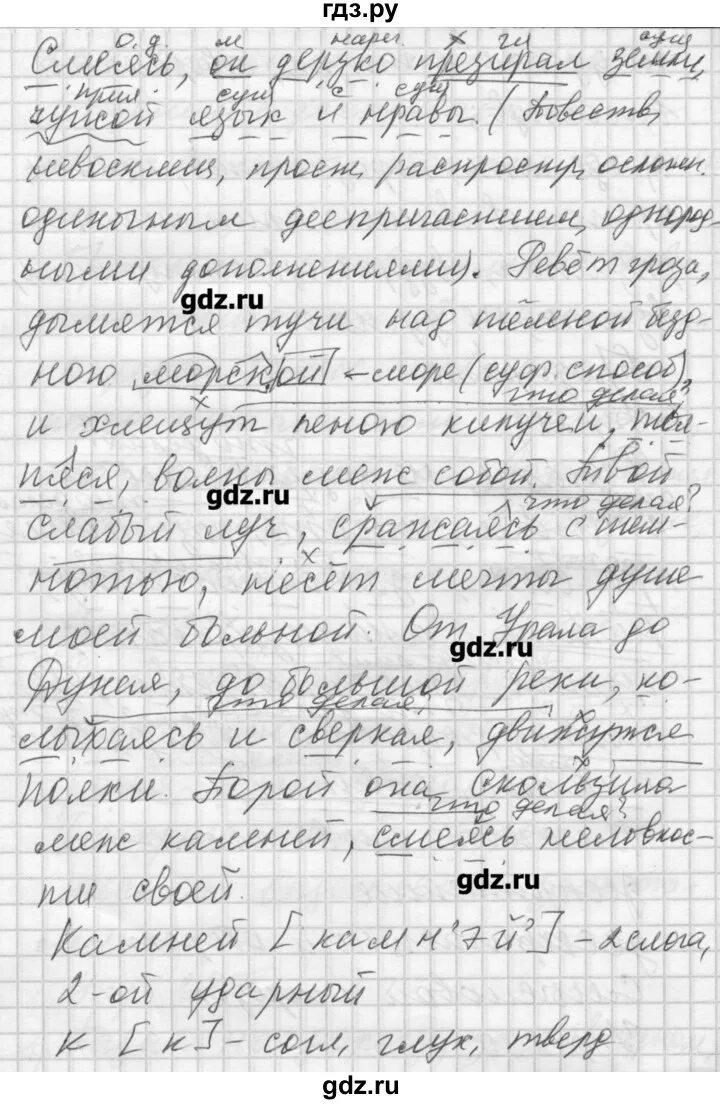 гдз.ру
о.д. м нареч. х гл сущ
Смеясь, он дерзко презирал земли,
прил сущ с. сущ
чужой язык и нравы. (Повеств,
невосклиц, прост, распростр, ослож.
одиночным деепричастием, однород-
ными дополнениями). Ревёт гроза,
gdz.ru
дымятся тучи над тёмной безд-
ною морской ← море (суф. способ),
что делая?
и хлещут пеною кипучей, тол-
пяся, волны меж собой. Твой
gdz.ru
что делая?
слабый луч, сражаясь с тем-
нотою, несёт мечты душе
моей больной. От Урала до
gdz.ru
Дуная, до большой реки, ко-
что делая?
лыхаясь и сверкая, движутся
полки. Порой она скользила
что делая?
меж камней, смеясь неловкос-
ти своей.
gdz.ru
Камней [камн'эй'] - 2 слога,
2-ой ударный
к [к] - согл, глух, тверд
gdz.ru